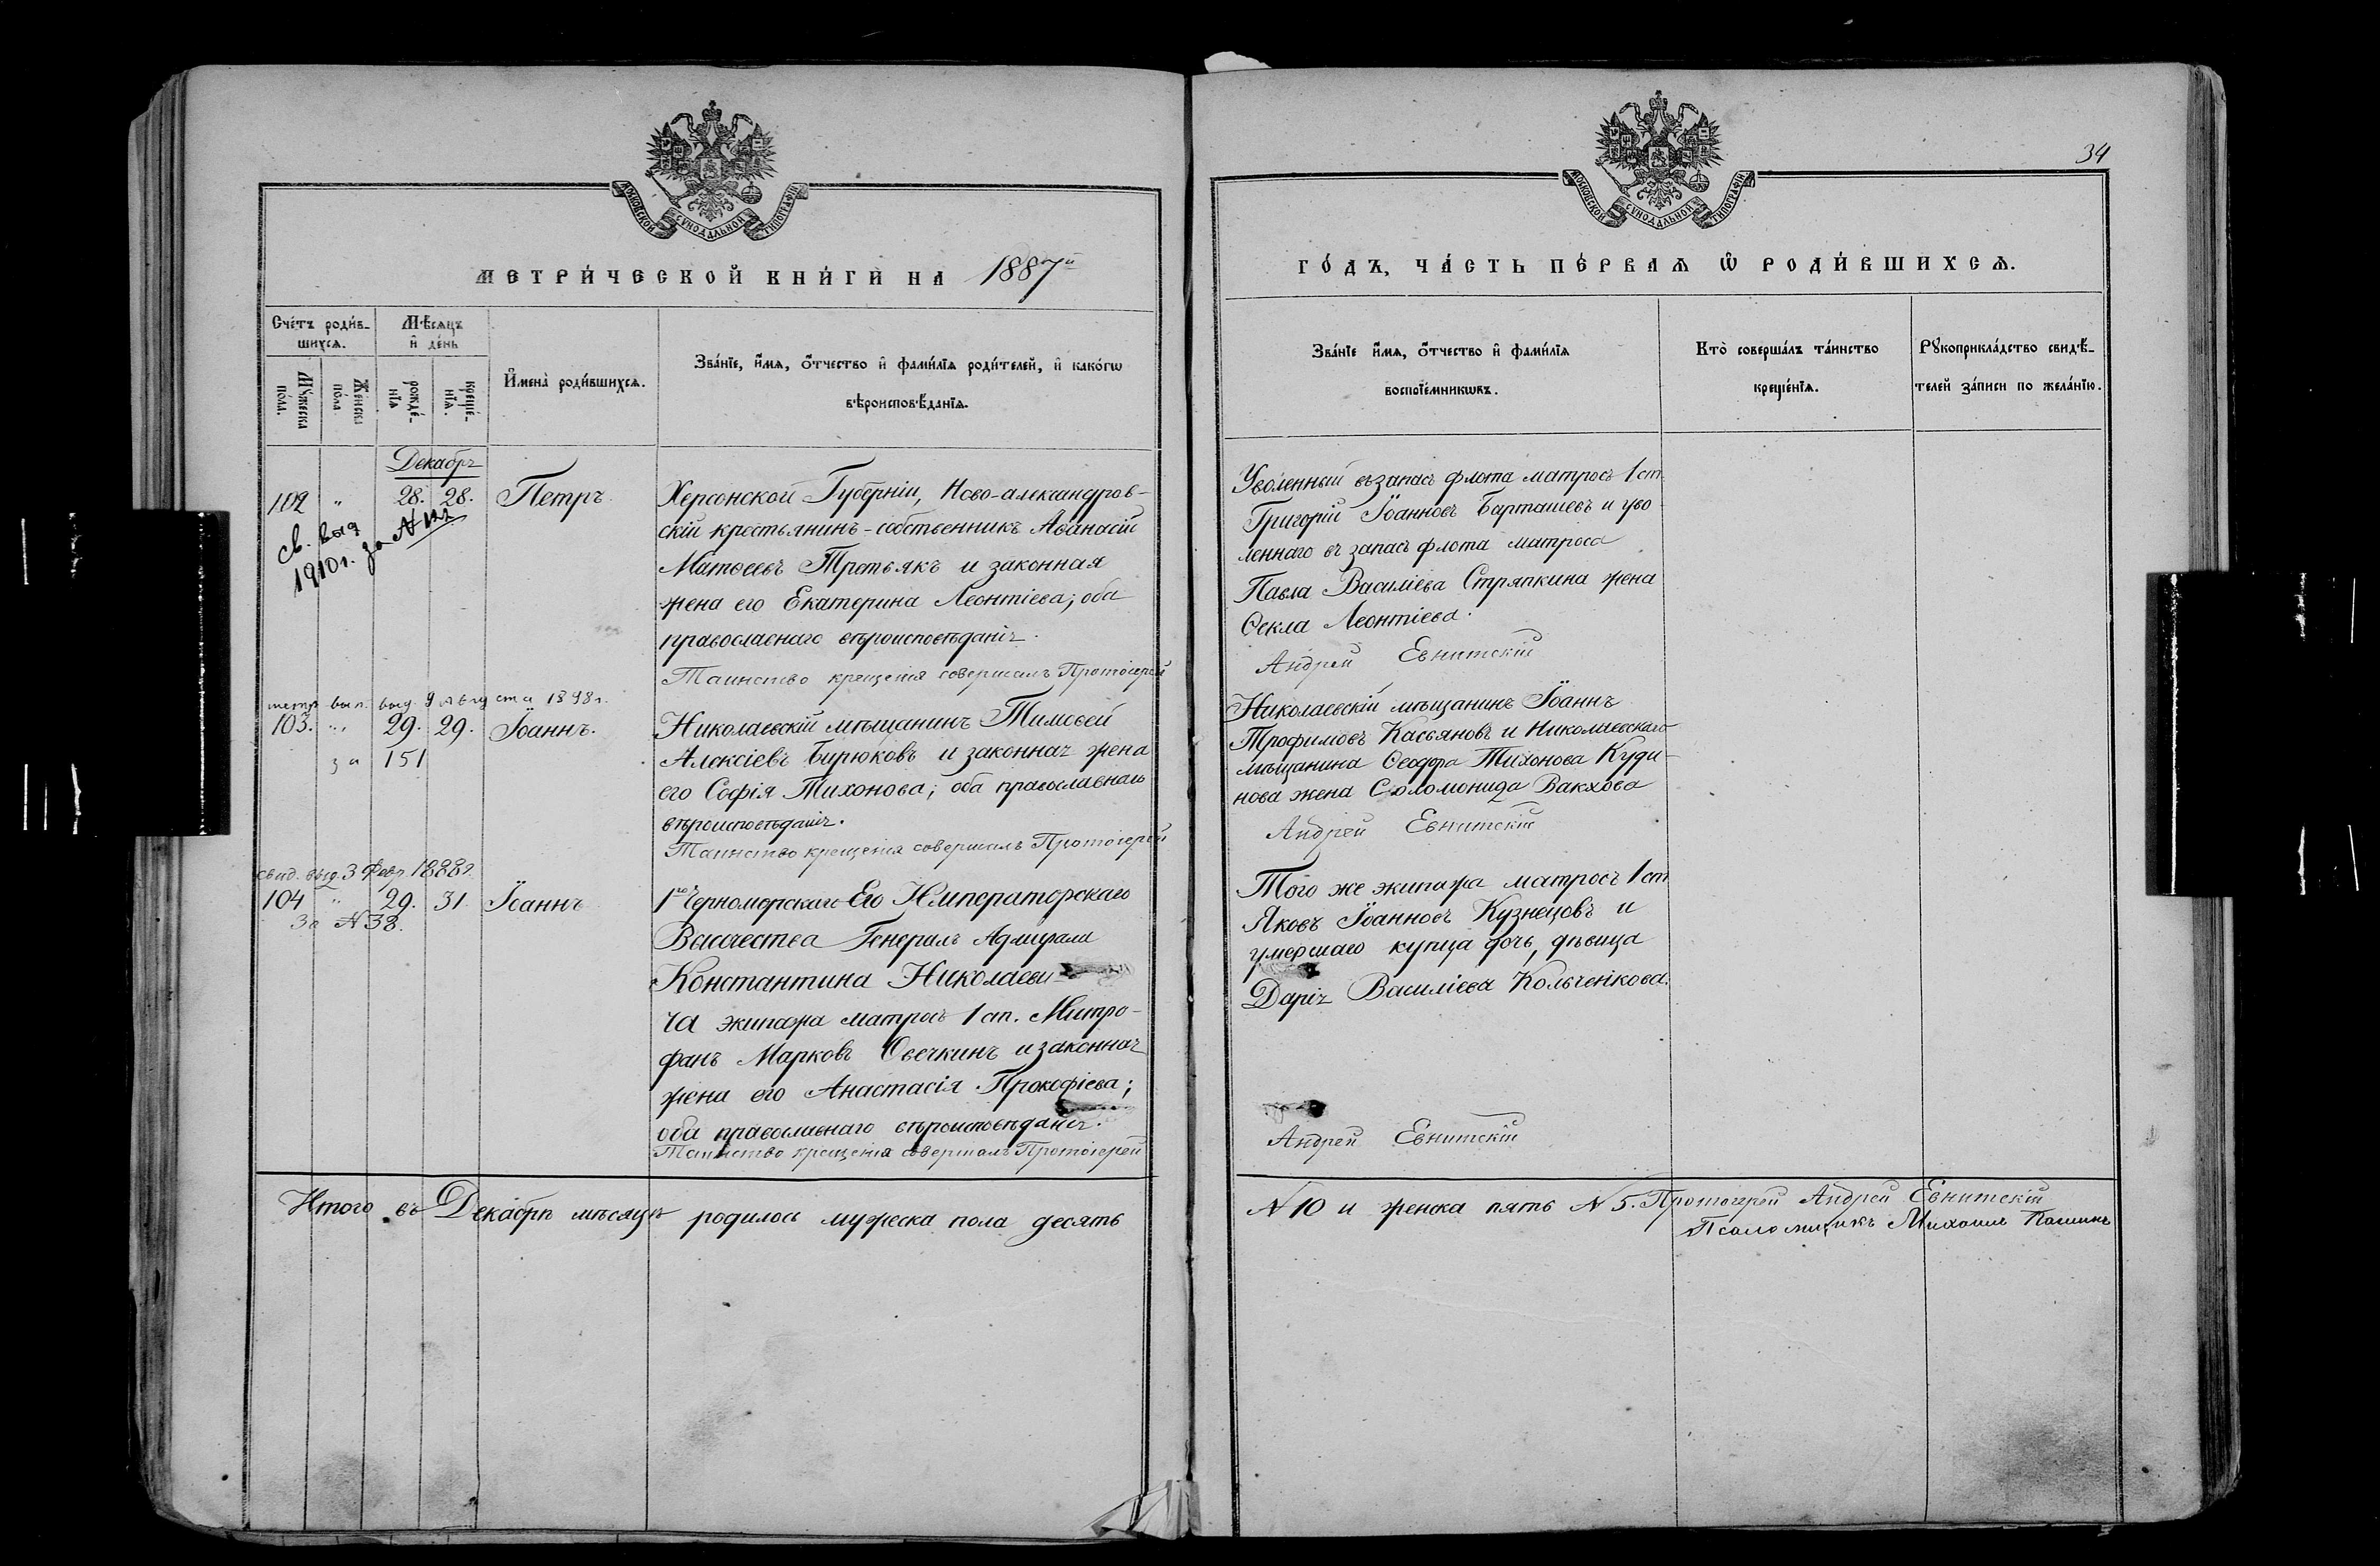 МОСКОВСКОЙ СѴНОДАЛЬНОЙ ТИПОГРАФІИ
МЕТРИ́ЧЕСКОЙ КНИ́ГИ НА 1887й
Сче́тъ роди́в-
шихсѧ.
Мѣ́сѧцъ
и҆ де́нь
Мꙋ́жеска
по́ла.
Же́нска
по́ла
рожде́-
нїѧ
креще́-
нїѧ.
И҆мена̀ роди́вшихсѧ.
Зва́нїе, и҆́мѧ, ѻ҆́тчество и҆ фами́лїѧ роди́телей, и҆ како́гѡ
вѣроисповѣ́данїѧ.
Декабрь
102 " 28. 28. Петръ
св. выд
1910 г. за №
Херсонской Губерніи, Ново-александров-
скій крестьянинъ-собственникъ Аѳанасій
Матѳеевъ Третьякъ и законная
жена его Екатерина Леонтіева; оба
православнаго вѣроисповѣданія.
Таинство крещенія совершалъ Протоіерей
метр. вып. выд. 9 Августа 1898 г.
103. " 29. 29. Іоаннъ.
за 151
Николаевскій мѣщанинъ Тимоѳей
Алексіевъ Бирюковъ и законная жена
его Софія Тихонова; оба православнаго
вѣроисповѣданія.
Таинство крещенія совершалъ Протоіерей
свид. выд. 3 Февр. 1888 г.
104 " 29. 31. Іоаннъ
за №38.
1го Черноморскаго Его Императорскаго
Высочества Генералъ Адмирала
Константина Николаеви-
ча экипажа матросъ 1 ст. Митро-
фанъ Марковъ Овечкинъ и законная
жена его Анастасія Прокофіева;
оба православнаго вѣроисповѣданія.
Таинство крещенія совершалъ Протоіерей
Итого въ Декабрѣ мѣсяцѣ родилось мужеска пола десять
34
МОСКОВСКОЙ СѴНОДАЛЬНОЙ ТИПОГРАФІИ
ГО́ДЪ, ЧА́СТЬ ПЕ́РВАѦ Ѡ҆ РОДИ́ВШИХСѦ.
Зва́нїе и҆́мѧ, ѻ҆́тчество и҆ фами́лїѧ
воспрїе́мникѡвъ.
Кто̀ соверша́лъ та́инство
креще́нїѧ.
Рꙋкоприкла́дство свидѣ́-
телей за́писи по жела́нїю.
Уволенный въ запасъ флота матросъ 1 ст.
Григорій Іоанновъ Барташевъ и уво
леннаго въ запасъ флота матроса
Павла Василіева Стряпкина жена
Ѳекла Леонтіева.
Андрей Евнитскій
Николаевскій мѣщанинъ Іоаннъ
Трофимовъ Касьяновъ и Николаевскаго
мѣщанина Ѳеодора Тихонова Куди-
нова жена Соломонида Вакхова
Андрей Евнитскій
Того же экипажа матросъ 1 ст.
Яковъ Іоанновъ Кузнецовъ и
умершаго купца дочь, дѣвица
Дарія Василіева Кольченкова.
Андрей Евнитскій
№ 10 и женска пять № 5. Протоіерей Андрей Евнитскій
Псаломщикъ Михаилъ